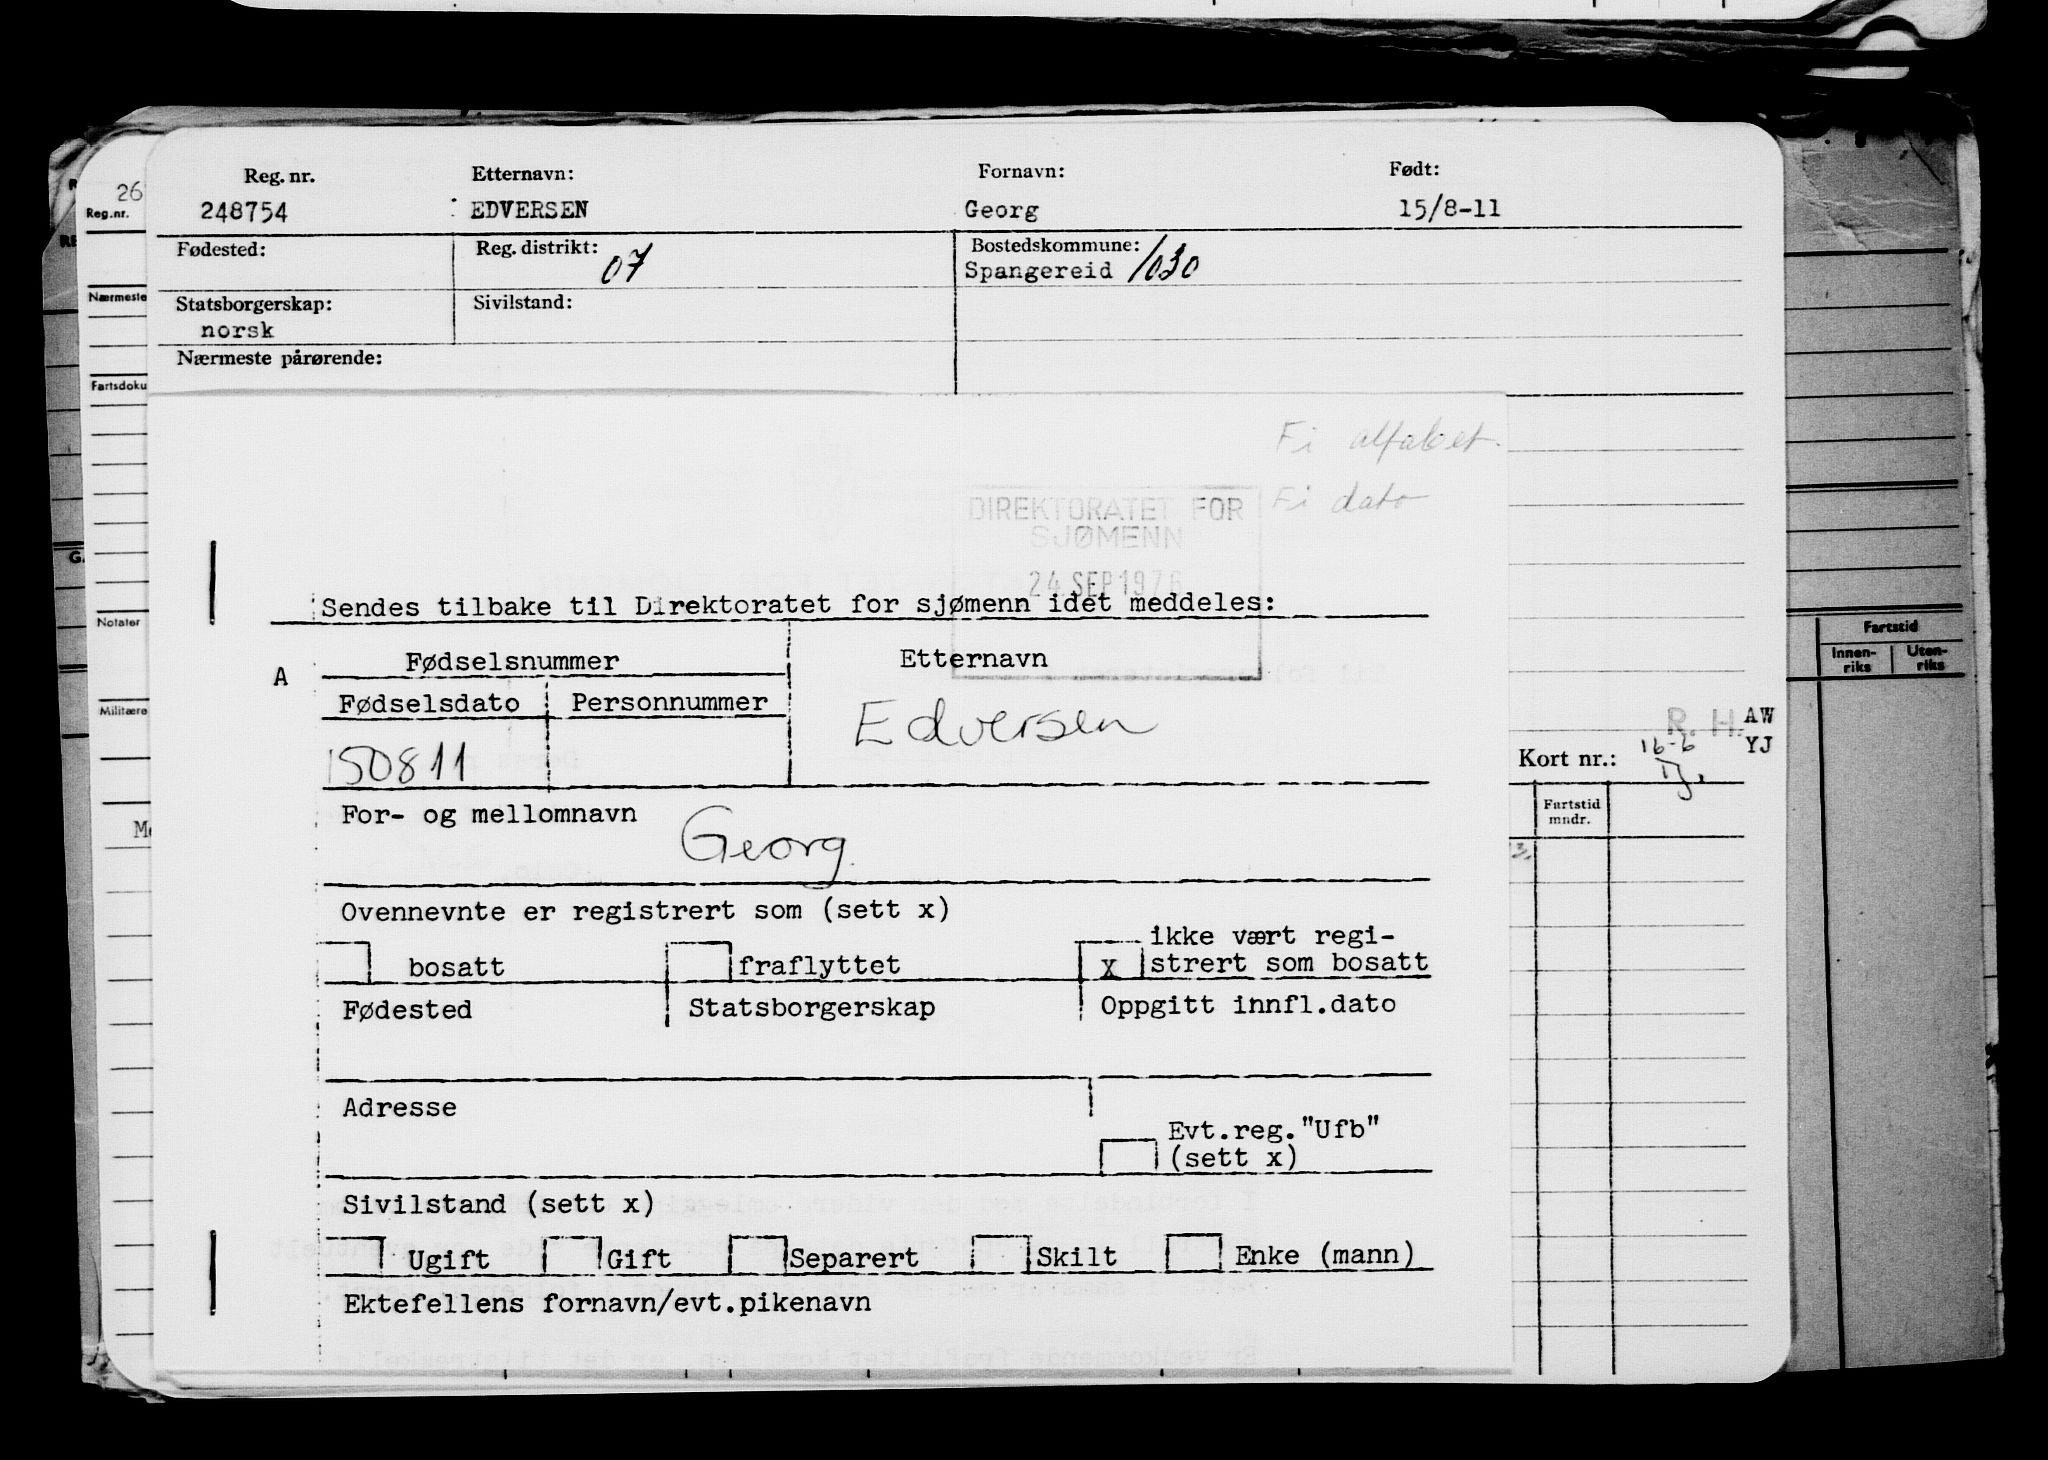 Reg. nr. Etternavn: Fornavn: Født:
248754 EDVERSEN Georg 15/8-11
Fødested: Reg. distrikt: 07 Bostedskommune:
Spangereid 1030
Statsborgerskap: Sivilstand:
norsk
Nærmeste pårørende:
26
Reg.nr.
Nærmeste
Fartsdoku
Notater
Militære
Fi alfabet.
Fi dato
DIREKTORATET FOR
SJØMENN
24 SEP 1976
Sendes tilbake til Direktoratet for sjømenn idet meddeles:
A Fødselsnummer Etternavn
Fødselsdato Personnummer
150811 Edversen
For- og mellomnavn Georg
Ovennevnte er registrert som (sett x)
bosatt fraflyttet X ikke vært regi-
strert som bosatt
Fødested Statsborgerskap Oppgitt innfl.dato
Adresse
Evt.reg."Ufb"
(sett x)
Sivilstand (sett x)
Ugift Gift Separert Skilt Enke (mann)
Ektefellens fornavn/evt.pikenavn
R. H. AW
YJ
Kort nr.: 16-6
Fartstid
mndr.
Fartstid
Innen-
riks
Uten-
riks